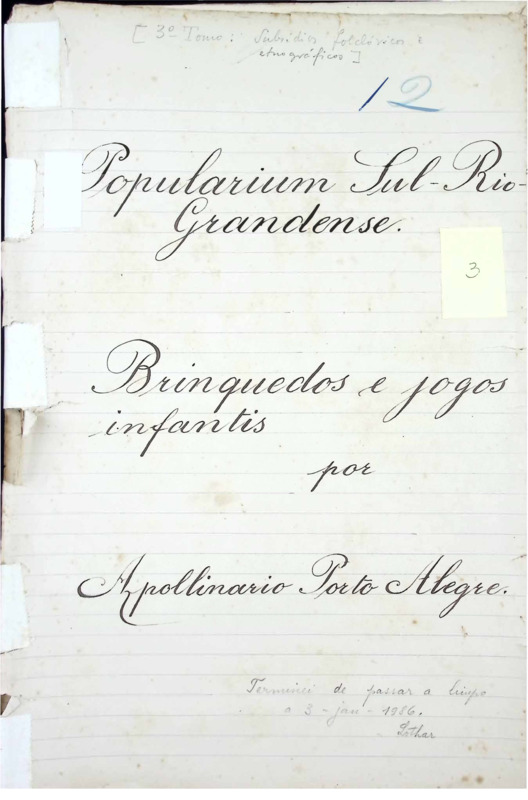 [3º Tomo: Subsídios folclóricos e
etnográficos]
12
Popularium Sul-Rio-
Grandense.
3
Brinquedos e jogos
infantis
por
Apollinario Porto Alegre.
Terminei de passar a limpo
a 3-jan-1986.
Lothar